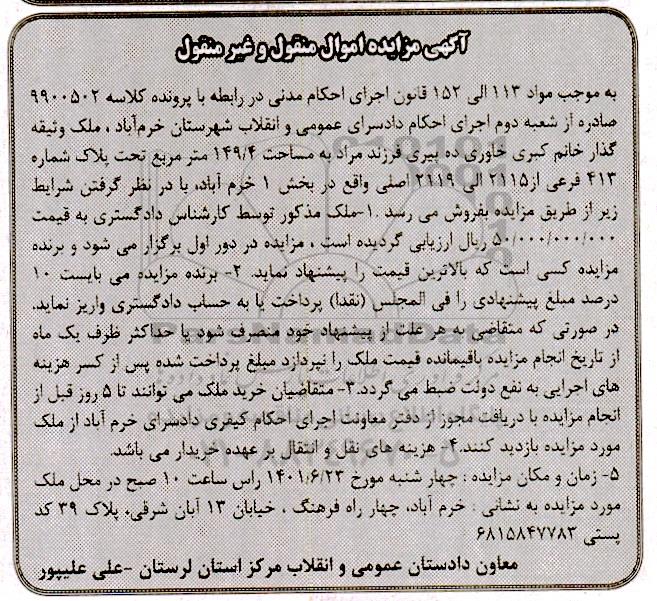 آگهی مزایده اموال منقول و غیر منقول
به موجب مواد ۱۱۳ الی ۱۵۲ قانون اجرای احکام مدنی در رابطه با پرونده کلاسه ۹۹۰۰۵۰۲
صادره از شعبه دوم اجرای احکام دادسرای عمومی و انقلاب شهرستان خرم‌آباد ، ملک وثیقه
گذار خانم کبری خاوری ده پیری فرزند مراد به مساحت ۱۴۹/۴ متر مربع تحت پلاک شماره
۴۱۳ فرعی از۲۱۱۵ الی ۲۱۱۹ اصلی واقع در بخش ۱ خرم آباد، با در نظر گرفتن شرایط
زیر از طریق مزایده بفروش می رسد .۱-ملک مذکور توسط کارشناس دادگستری به قیمت
۵۰/۰۰۰/۰۰۰/۰۰۰ ریال ارزیابی گردیده است ، مزایده در دور اول برگزار می شود و برنده
مزایده کسی است که بالاترین قیمت را پیشنهاد نماید. ۲- برنده مزایده می بایست ۱۰
درصد مبلغ پیشنهادی را فی المجلس (نقدا) پرداخت یا به حساب دادگستری واریز نماید.
در صورتی که متقاضی به هر علت از پیشنهاد خود منصرف شود یا حداکثر ظرف یک ماه
از تاریخ انجام مزایده باقیمانده قیمت ملک را نپردازد مبلغ پرداخت شده پس از کسر هزینه
های اجرایی به نفع دولت ضبط می گردد.۳- متقاضیان خرید ملک می توانند تا ۵ روز قبل از
انجام مزایده با دریافت مجوز از دفتر معاونت اجرای احکام کیفری دادسرای خرم آباد از ملک
مورد مزایده بازدید کنند.۴- هزینه های نقل و انتقال بر عهده خریدار می باشد.
۵- زمان و مکان مزایده : چهار شنبه مورخ ۱۴۰۱/۶/۲۳ راس ساعت ۱۰ صبح در محل ملک
مورد مزایده به نشانی : خرم آباد، چهار راه فرهنگ ، خیابان ۱۳ آبان شرقی، پلاک ۳۹ کد
پستی ۶۸۱۵۸۴۷۷۸۳
معاون دادستان عمومی و انقلاب مرکز استان لرستان -علی علیپور
ParsNamadData